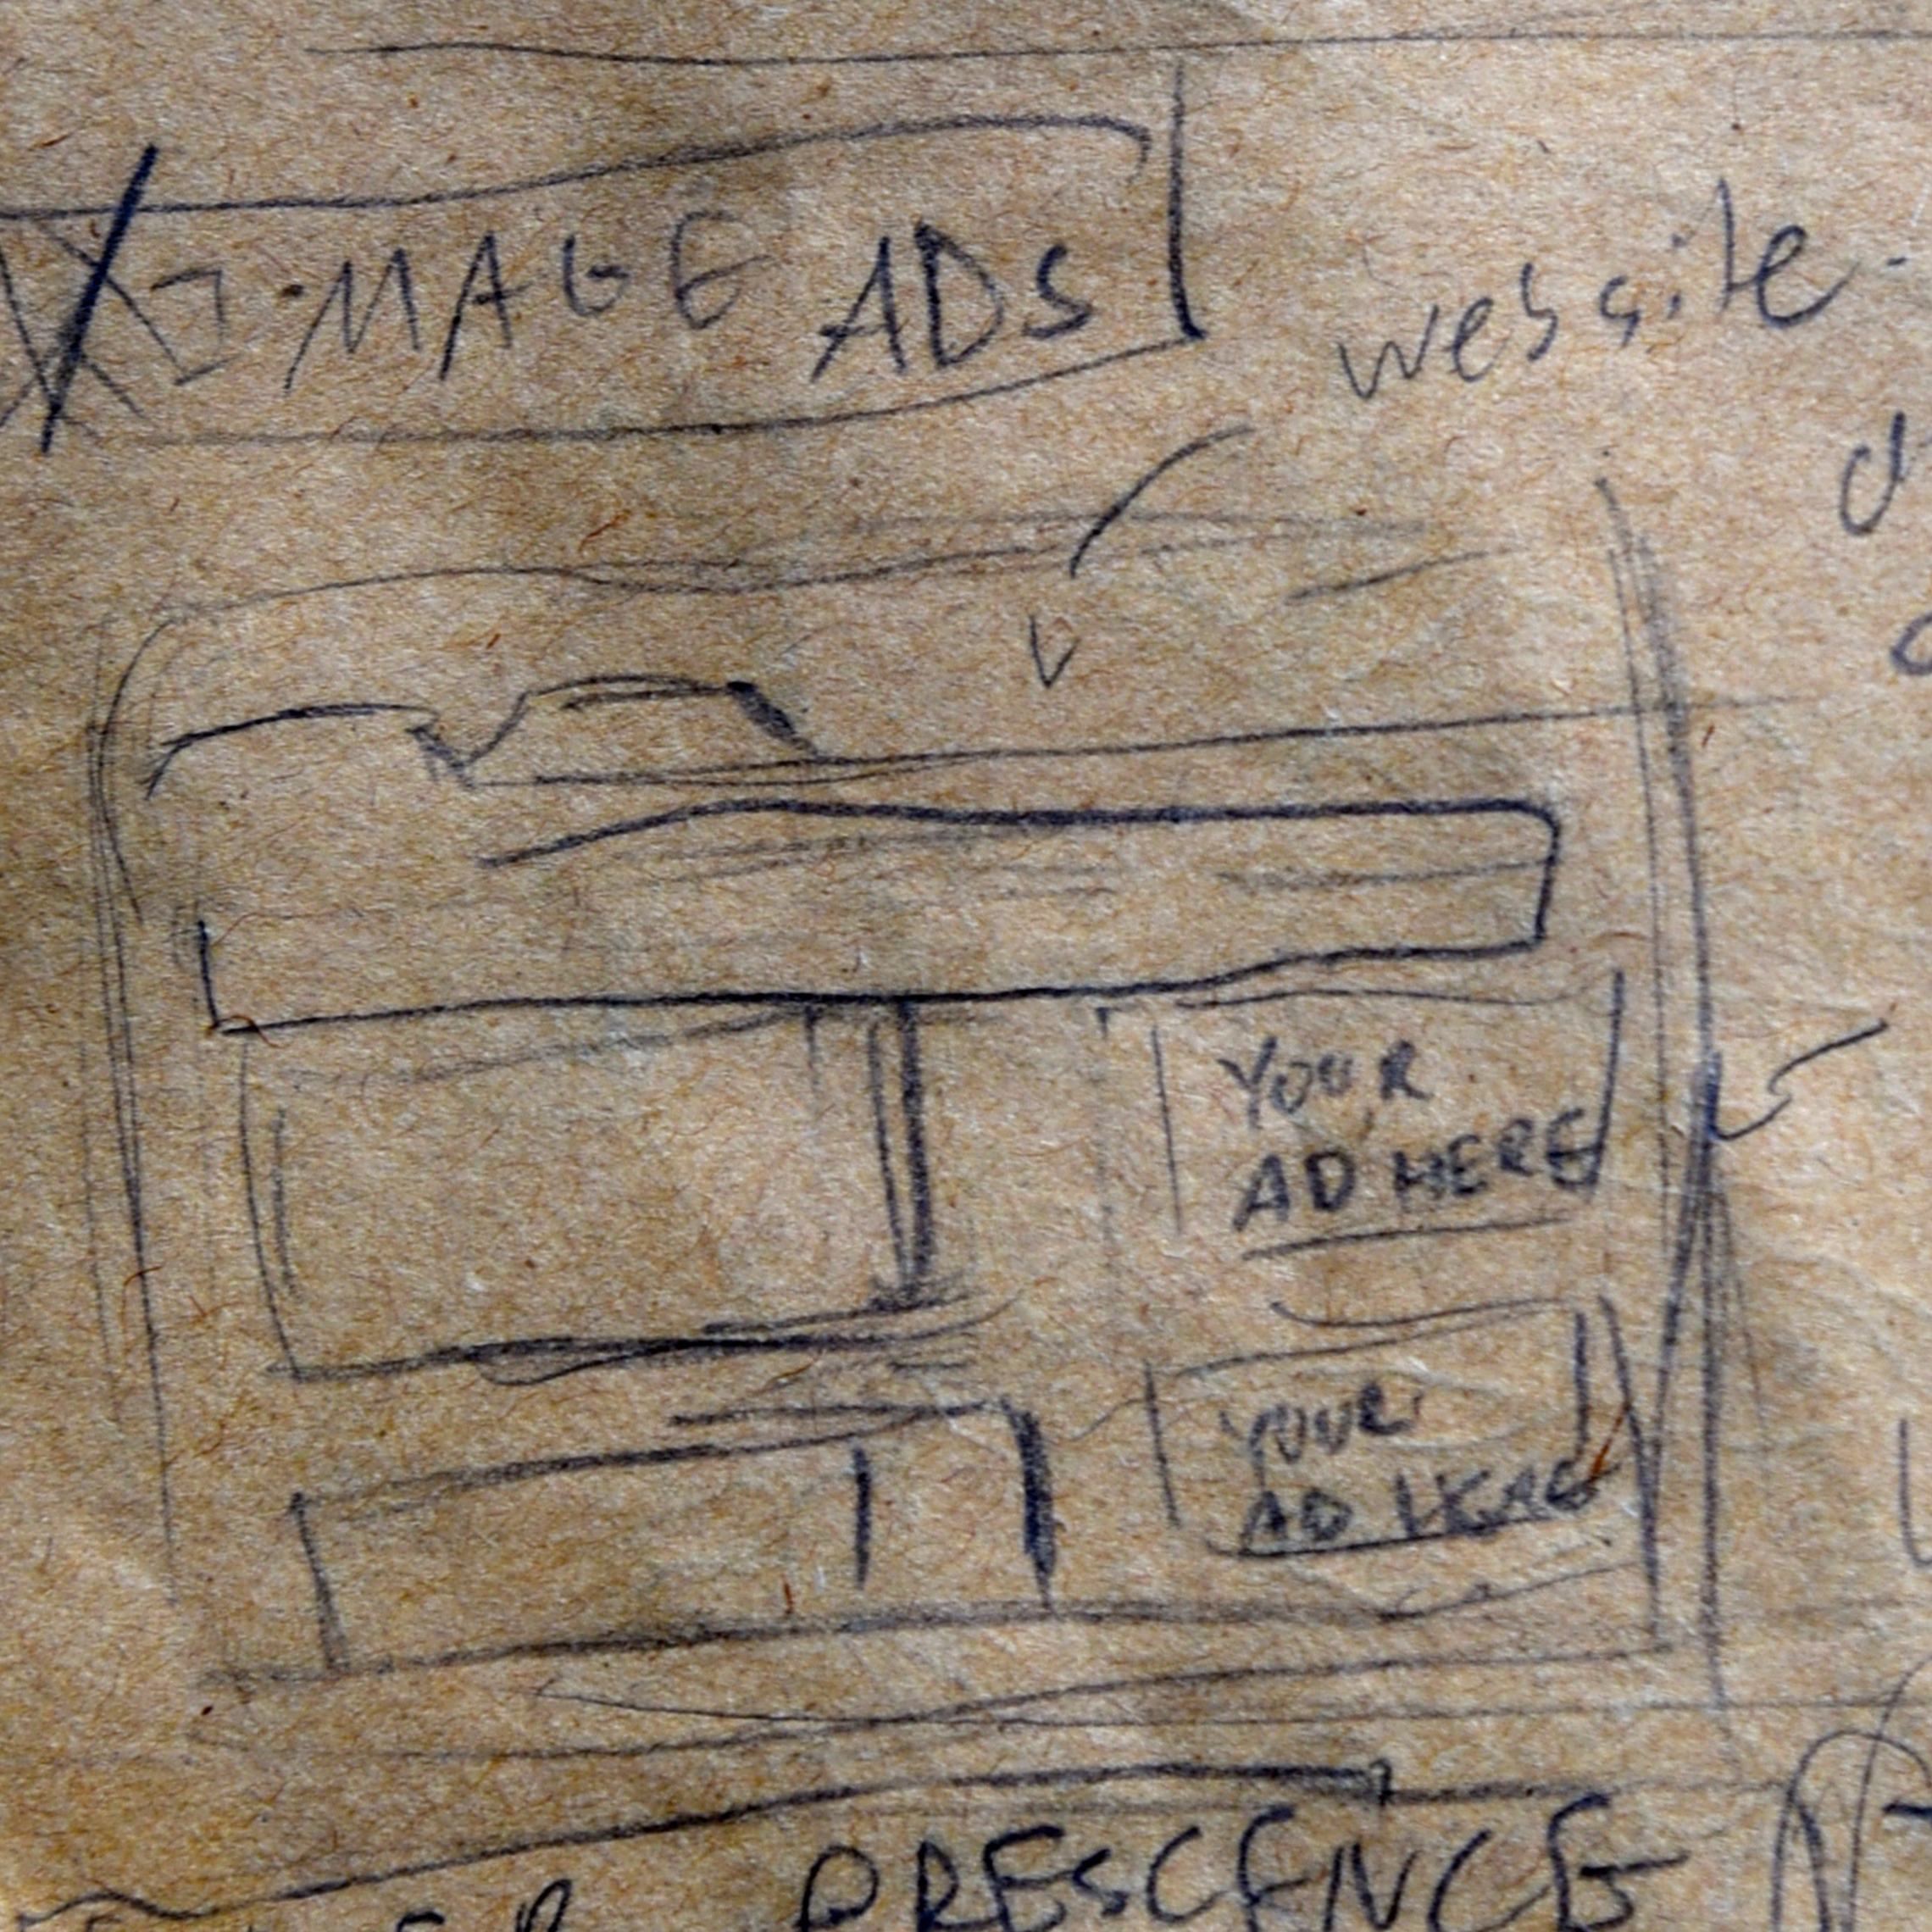 IMAGE ADS
website.
YOUR
AD HERE
YOUR
AD HERE
PRESCENCE